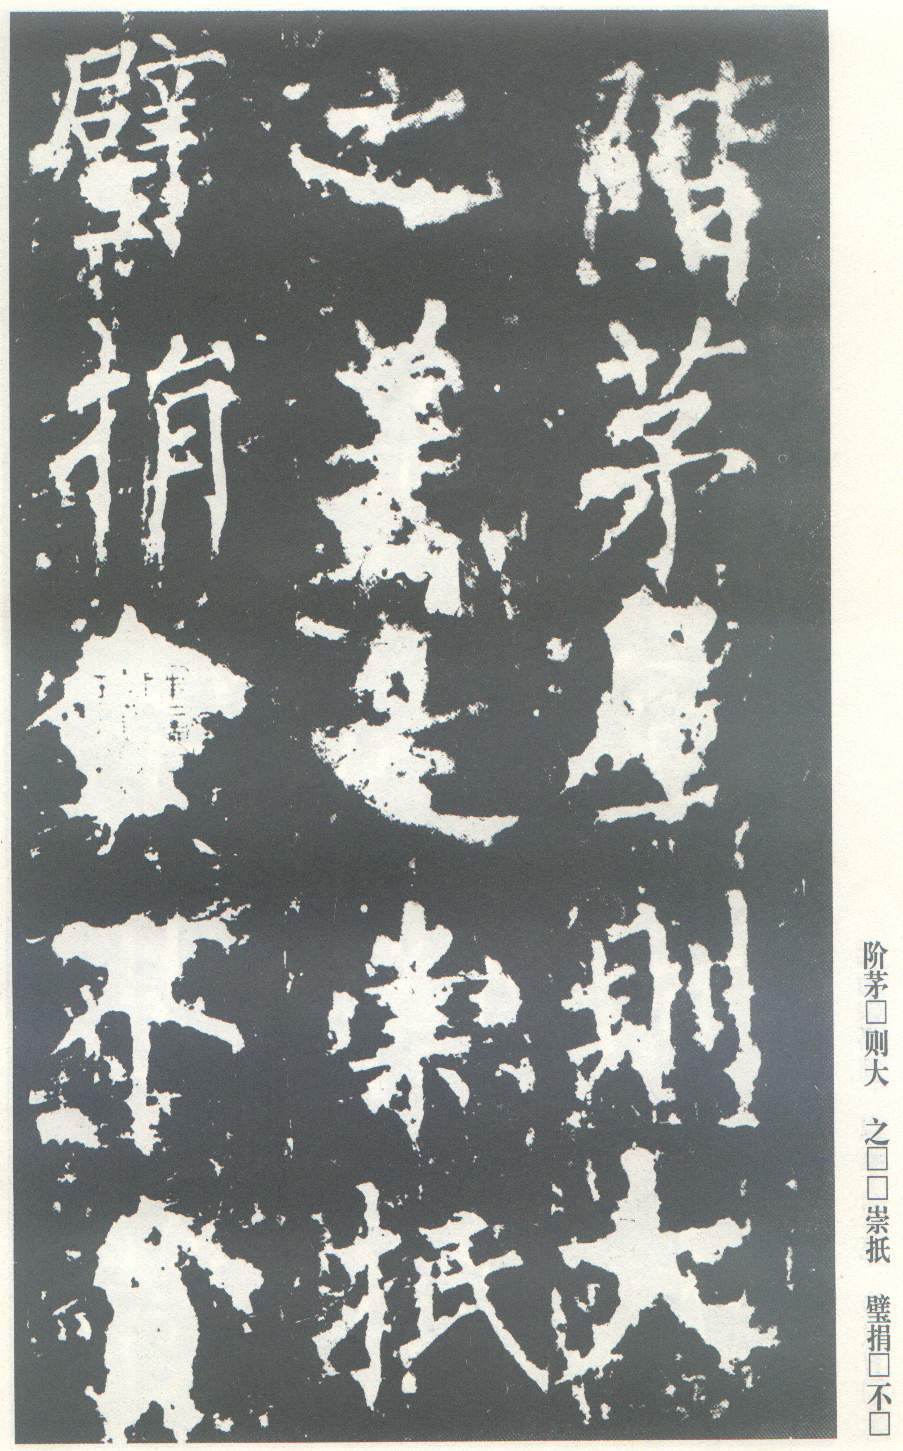 階茅則大
之是崇抵
璧捐不
阶茅□则大 之□□崇抵 璧捐□不□